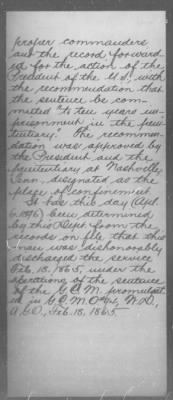 proper commanders
and the record forward
ed for the action of the
President of the U.S., with
the recommendation that
the sentence be com-
muted "to ten years im-
prisonment in the peni-
tentiary." The recommen-
dation was approved by
the President and the
penitentiary at Nashville,
Tenn. designated as the
place of confinement.
It has this day (Apl.
6. 1896) been determined
by this Dept. from the
records on file that this
man was dishonorably
discharged the service
Feb. 18. 1865, under the
operations of the sentence
of the G.C.M. promulgat
ed in G.C.M.O. W.D.,
A.G.O., Feb. 18. 1865.